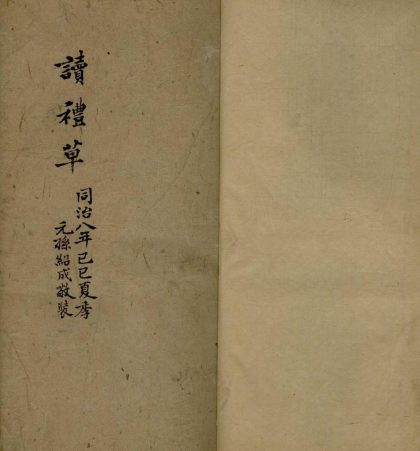 讀禮草
同治八年己巳夏季
元孫紹成敬裝